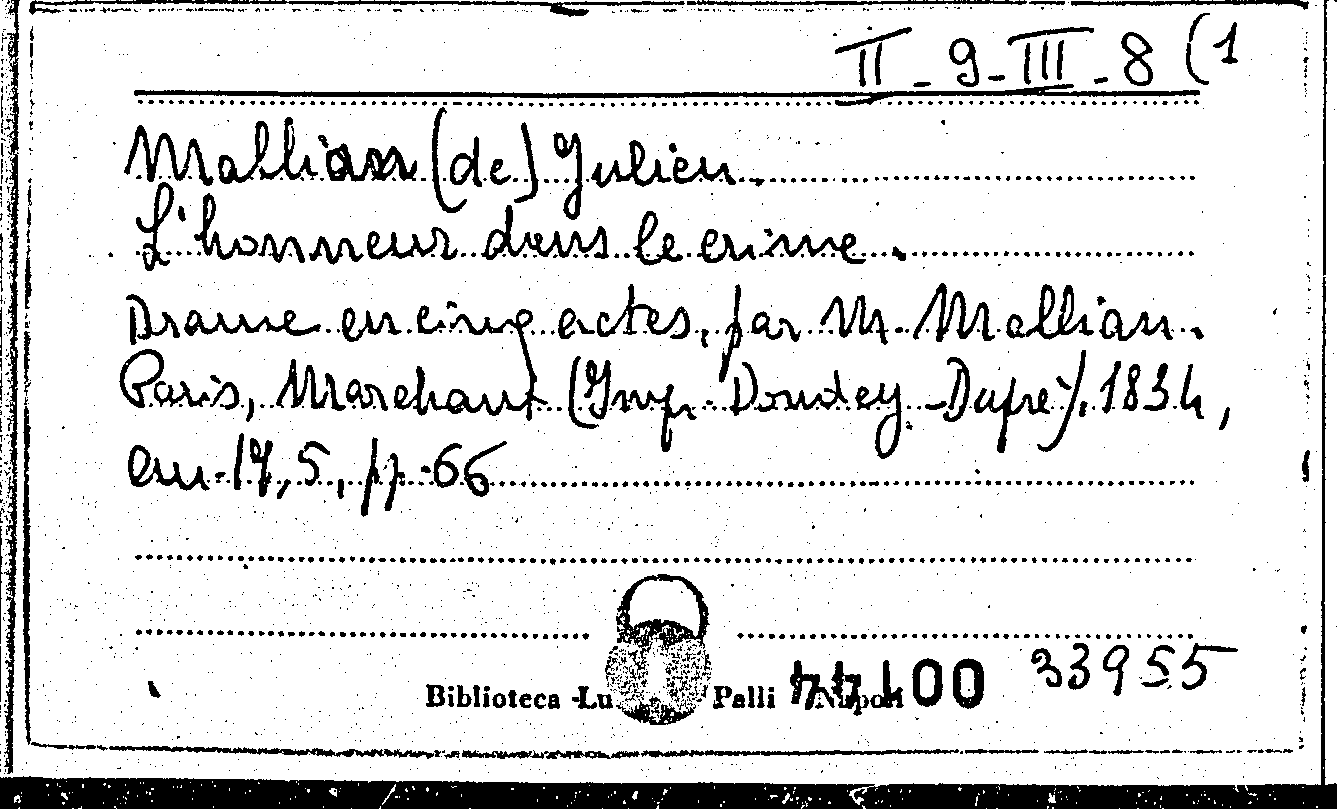 II - 9 - III - 8 (1
Mallian (de) Julien.
L'honneur dans le crime.
Drame en cinq actes, par M. Mallian.
Paris, Marchant (Imp. Dondey-Dupré), 1834,
cm. 17,5, pp. 66
33955
Biblioteca Lu Palli Napoli 001744